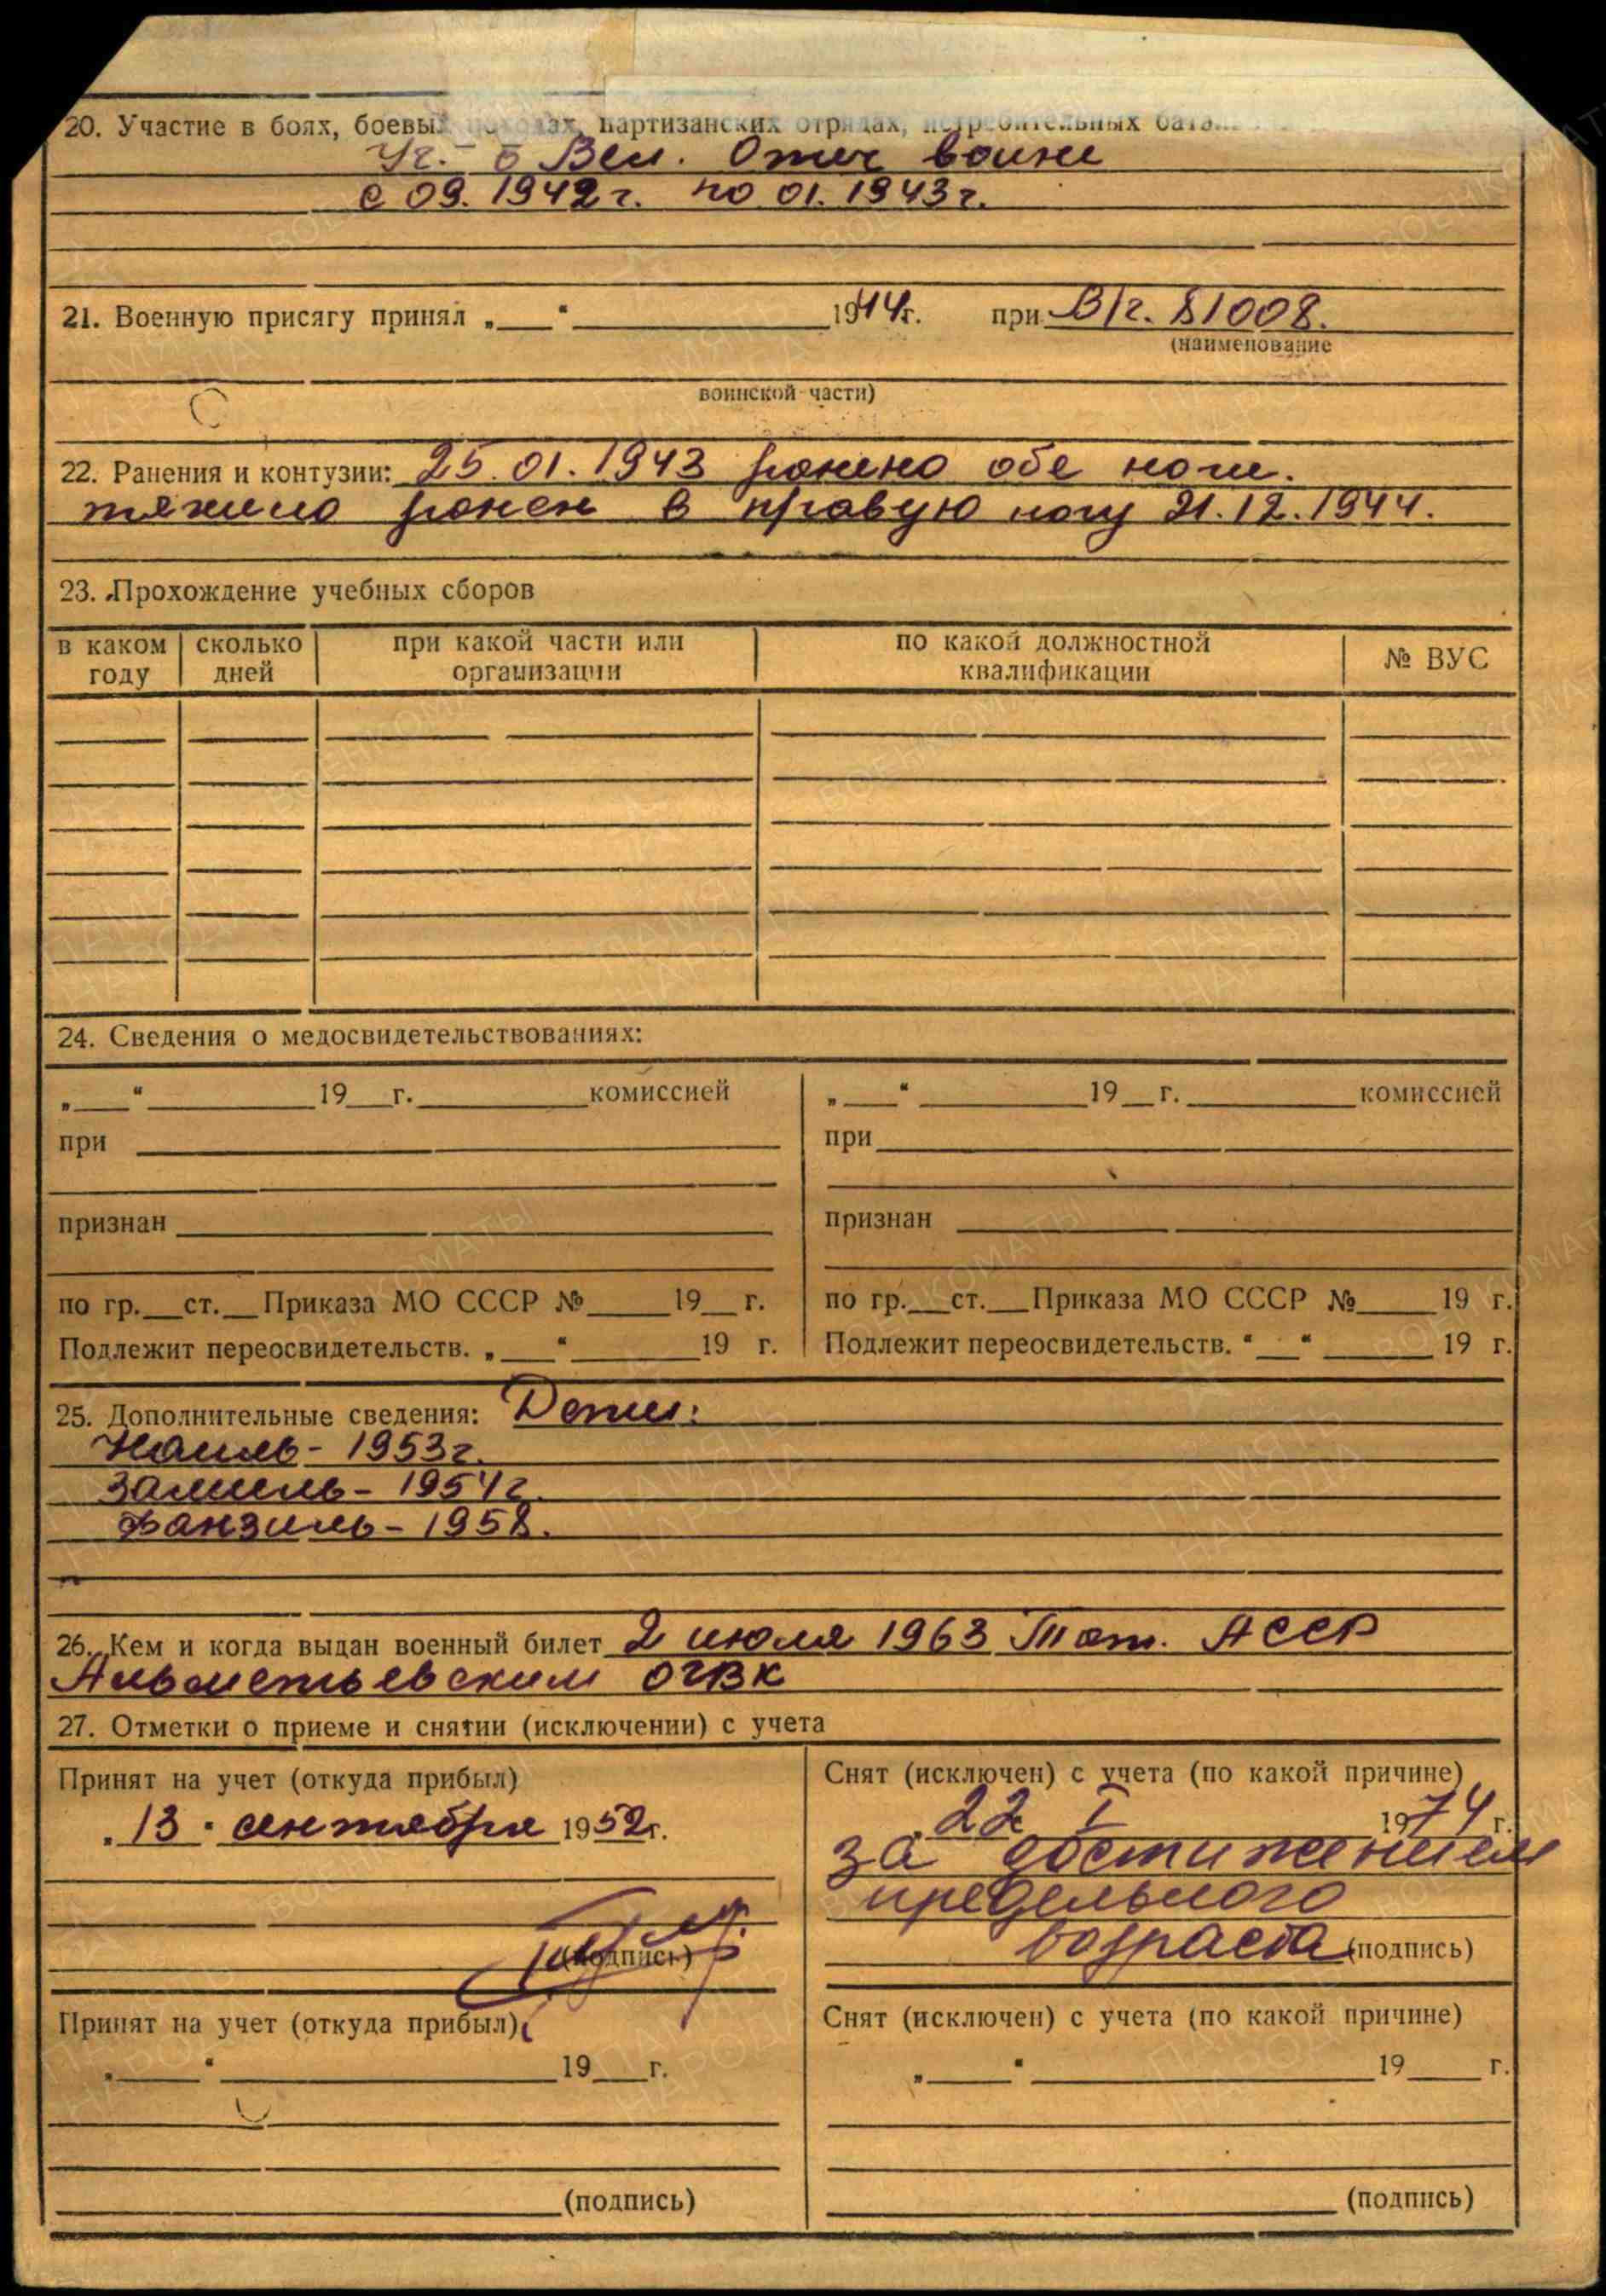 20. Участие в боях, боевых походах, партизанских отрядах, истребительных бата
Уч. в Вел. Отеч войне
с 09. 1942 г. по 01. 1943 г.
21. Военную присягу принял „___“ 1944 г. при В/г. 81008.
(наименование
воинской части)
22. Ранения и контузии: 25.01.1943 ранено обе ноги.
тяжело ранен в правую ногу 21.12.1944.
23. Прохождение учебных сборов
в каком году | сколько дней | при какой части или организации | по какой должностной квалификации | № ВУС
24. Сведения о медосвидетельствованиях:
„___“ ______ 19__ г. ______ комиссией „___“ ______ 19__ г. ______ комиссией
при при
признан признан
по гр.__ ст.__ Приказа МО СССР № ____ 19__ г. по гр.__ ст.__ Приказа МО СССР № ____ 19 г.
Подлежит переосвидетельств. „___“ ______ 19 г. Подлежит переосвидетельств. “___“ ______ 19 г.
25. Дополнительные сведения: Дети:
Наиль - 1953 г.
Замиль - 1954 г.
Фанзиль - 1958.
26. Кем и когда выдан военный билет 2 июля 1963 Тат. АССР
Альметьевским ОГВК
27. Отметки о приеме и снятии (исключении) с учета
Принят на учет (откуда прибыл) Снят (исключен) с учета (по какой причине)
„13“ сентября 1952 г. 22 I 1974 г.
за достижением
предельного
(подпись) возраста (подпись)
Принят на учет (откуда прибыл) Снят (исключен) с учета (по какой причине)
„___“ ______ 19__ г. „___“ ______ 19__ г.
(подпись) (подпись)